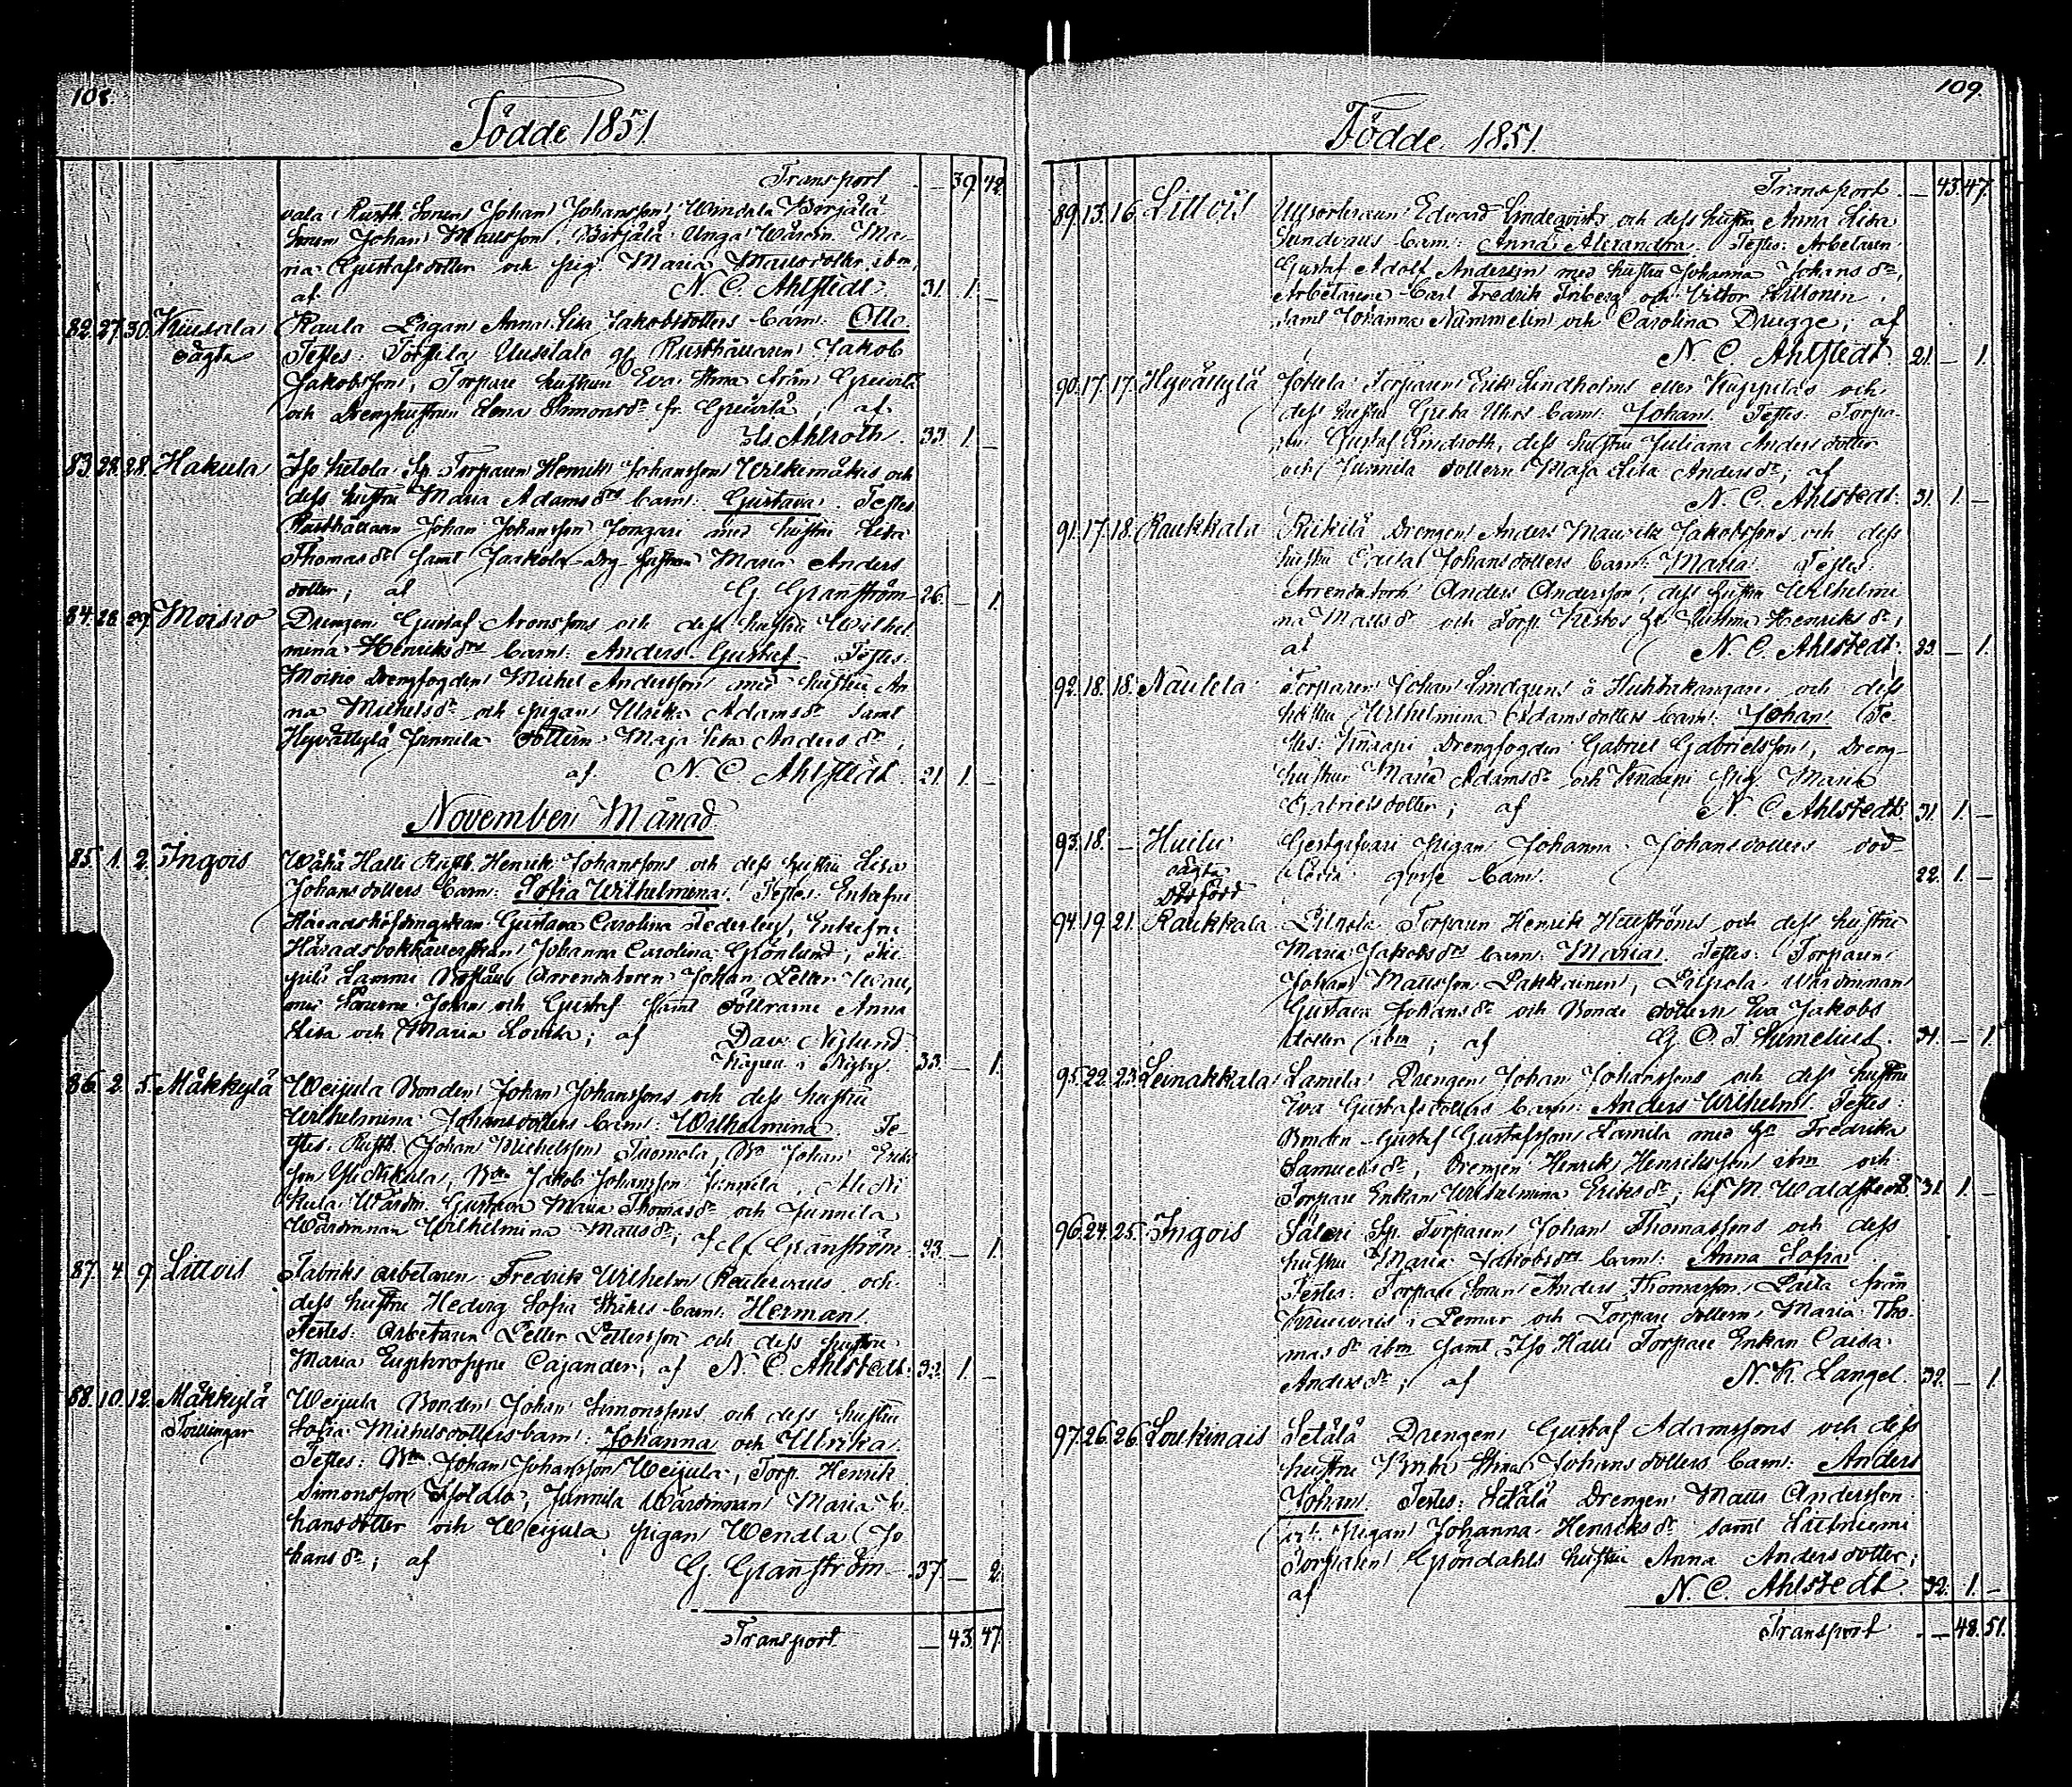 108.
Födde 1851.
Transport — 39. 42.
vala Rusth. Sonen Johan Johansson, Wendela Börjälä
Sonen Johan Mattsson, Börjälä Unga Wärdin Ma-
ria Gustafsdotter och pig. Maria Mattsdotter ibm,
af N. C. Ahlstedt. 31. 1. —
82. 27. 30. Kiusala Raula Pigan Anna Lisa Jakobsdotters barn: Otto
oägta Testes: Rusthållaren Jakob
Jakobsson, Torpare hustrun Eva Stina från
och Drenghustrun Lena Simonsdr fr. ; af
Ahlroth. 33. 1. —
83. 28. 28. Hakula Iso Ketola Sp. Torparen Henrik Johansson Wilkimäkis och
dess hustru Maria Adamsdrs barn: Gustava. Testes
Rusthållaren Johan Johansson med hustru Lisa
Thomasdr samt Jaakola Drg hustrun Maria Anders
dotter; af G. Granström 26. — 1.
84. 28. 29. Moisio Drengen Gustaf Aronssons och dess hustru Wilhel
mina Henriksdrs barn: Anders Gustaf. Testes:
Moisio Drengfogden Michel Andersson med hustru An
na Michelsdr och pigan Ulrika Adamsdr samt
Hyvättylä Junnila dottern Maja Lisa Andersdr,
af N. C. Ahlstedt. 21. 1. —
November Månad
85. 1. 2. Ingois Wähä Halli Rusth. Henrik Johanssons och dess hustru Lisa
Johansdotters barn: Sofia Wilhelmina. Testes: Enkefru
Häradshöfdingskan Gustava Carolina Cederlew, Enkefru
Häradsbokhållerskan Johanna Carolina Grönlund,
Lammi Arrendatoren Johan Petter
med Sönerne Johan och Gustaf samt döttrarne Anna
Lisa och Maria Lovisa; af Dav. Nylund.
i Nyby 33. — 1.
86. 2. 5. Mäkkylä Weijula Bonden Johan Johanssons och dess hustru
Wilhelmina Johansdotters barn: Wilhelmina. Te-
stes. Rusth. Johan Michelsson Tuomola, Bn Johan Eriks
son Yli Nikula, Bn Jakob Johansson Junnila, Ali Ni
kula Wärdin. Gustava Maria Thomasdr och Junnila
Wärdinnan Wilhelmina Mattsdr; af G. Granström 33. — 1.
87. 4. 9. Littois Fabriks arbetaren Fredrik Wilhelm och
dess hustru Hedvig Sofia barn: Herman.
Testes: Arbetaren Petter Pettersson och dess hustru
Maria Euphrosyne Cajander; af N. C. Ahlstedt. 32. 1. —
88. 10. 12. Mäkkylä Weijula Bonden Johan Simonssons och dess hustru
Tvillingar Sofia Michelsdotters barn: Johanna och Ulrika.
Testes: Bn Johan Johansson Weijula, Torp. Henrik
Simonsson Isotalo, Junnila Wärdinnan Maria Jo-
hansdotter och Weijula pigan Wendla Jo
hansdr; af G. Granström 37. — 2.
Transport — 43. 47.
109.
Födde 1851.
Transport — 43. 47.
89. 13. 16. Littois Edvard Lindeqvists och dess hustru Anna Lisa
Sundvalls barn: Anna Alexandra. Testes: Arbetaren
Gustaf Adolf Andersson med hustru Johanna Johansdr,
Arbetarene Carl Fredrik Friberg och Viktor
samt Johanna Nummelin och Carolina Drugge; af
N. C. Ahlstedt. 21. — 1.
90. 17. 17. Hyvättylä Torparen Erik Lindholms eller och
dess hustru Greta barn: Johan. Testes: Torpa-
ren Gustaf Lindroth, dess hustru Juliana Andersdotter
och Junnila dottern Maja Lisa Andersdr; af
N. C. Ahlstedt. 31. 1. —
91. 17. 18. Raukkala Rikilä Drengen Anders Mauritz Jakobssons och dess
hustru Johansdotters barn: Maria. Testes:
Arrendatorn Anders Andersson, dess hustru Wilhelmi
na Mattsdr och Torp. Henriksdr,
af N. C. Ahlstedt. 33. — 1.
92. 18. 18. Nautela Torparen Johan Lindgrens å Huhtakangare och dess
hustru Wilhelmina Adamsdotters barn: Johan. Te-
stes: Knaapi Drengfogden Gabriel Gabrielsson, Dreng-
hustrun Maria Adamsdr och Knaapi pig. Maria
Gabrielsdotter; af N. C. Ahlstedt. 31. 1. —
93. 18. — Huilu Gestgifvari pigan Johanna Johansdotters död-
oägta födda gosse barn. 22. 1. —
Dödfödd
94. 19. 21. Raukkala Torparen Henrik Hellströms och dess hustru
Maria Jakobsdrs barn: Maria. Testes: Torparen
Johan Mattsson Pakkainen, Wärdinnan
Gustava Johansdr och Bonde dottern Eva Jakobs
dotter ibm; af G. O. T. Sumelius. 31. — 1.
95. 22. 23. Leinakkala Lamila Drengen Johan Johanssons och dess hustru
Eva Gustafsdotters barn: Anders Wilhelm. Testes:
Bonden Gustaf Gustafsson Lamila med hu Fredrika
Samuelsdr, Drengen Henrik Henriksson ibm och
Torpare Enkan Wilhelmina Eriksdr; af M. Waldstedt 31. 1. —
96. 24. 25. Ingois Säteri Sp. Torparen Johan Thomassons och dess
hustru Maria Jakobsdrs barn: Anna Sofia.
Testes: Torpare Sonen Anders Thomasson från
i Pemar och Torpare dottern Maria Tho-
masdr ibm samt Iso Halli Torpare Enkan Caisa
Andersdr; af N. K. Langel. 32. — 1.
97. 26. 26. Loukinais Setälä Drengen Gustaf Adamssons och dess
hustru Brita Stina Johansdotters barn: Anders
Johan. Testes: Setälä Drengen Matts Andersson
pigan Johanna Henriksdr samt
Torparen Gröndahls hustru Anna Andersdotter;
af N. C. Ahlstedt. 32. 1. —
Transport — 48. 51.